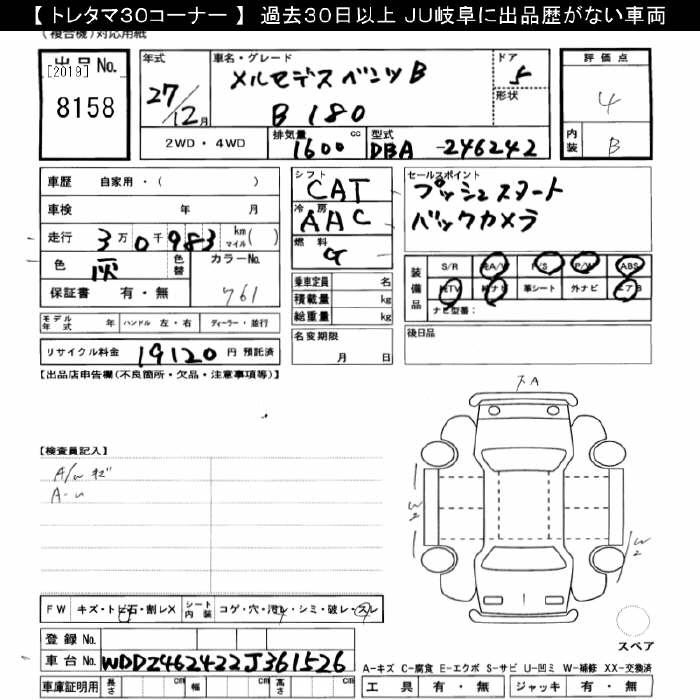 【 トレタマ３０コーナー 】 過去３０日以上 ＪＵ岐阜に出品歴がない車両
(複合機)対応用紙
出品 No.
[2019]
8158
年式
27/12月
車名・グレード
メルセデスベンツB
B 180
ドア
5
形状
評価点
4
内装
B
2WD・4WD
排気量
1600 cc
型式
DBA -246242
車歴 自家用・( )
車検 年 月
走行 3万0千983 km マイル( )
色 灰 色替 カラーNo.
保証書 有・無 761
シフト
CAT
冷房
AAC
燃料
乗車定員 名
積載量 kg
総重量 kg
セールスポイント
プッシュスタート
バックカメラ
装備品
S/R 純A/W P/S P/W ABS
純TV 純ナビ 革シート 外ナビ エアB
ナビ型番:
モデル年式 年 ハンドル 左・右 ディーラー・並行
リサイクル料金 19120 円 預託済
名変期限
月 日
後日品
【出品店申告欄(不良箇所・欠品・注意事項等)】
【検査員記入】
A/w キズ
A-u
A
W2
W2
FW キズ・トビ石・割レX シート内装 コゲ・穴・汚レ・シミ・破レ・スレ
登録 No.
車台 No. WDDZ462422J361526
車庫証明用 長さ cm 幅 cm 高さ cm
スペア
A-キズ C-腐食 E-エクボ S-サビ U-凹ミ W-補修 XX-交換済
工具 有・無 ジャッキ 有・無